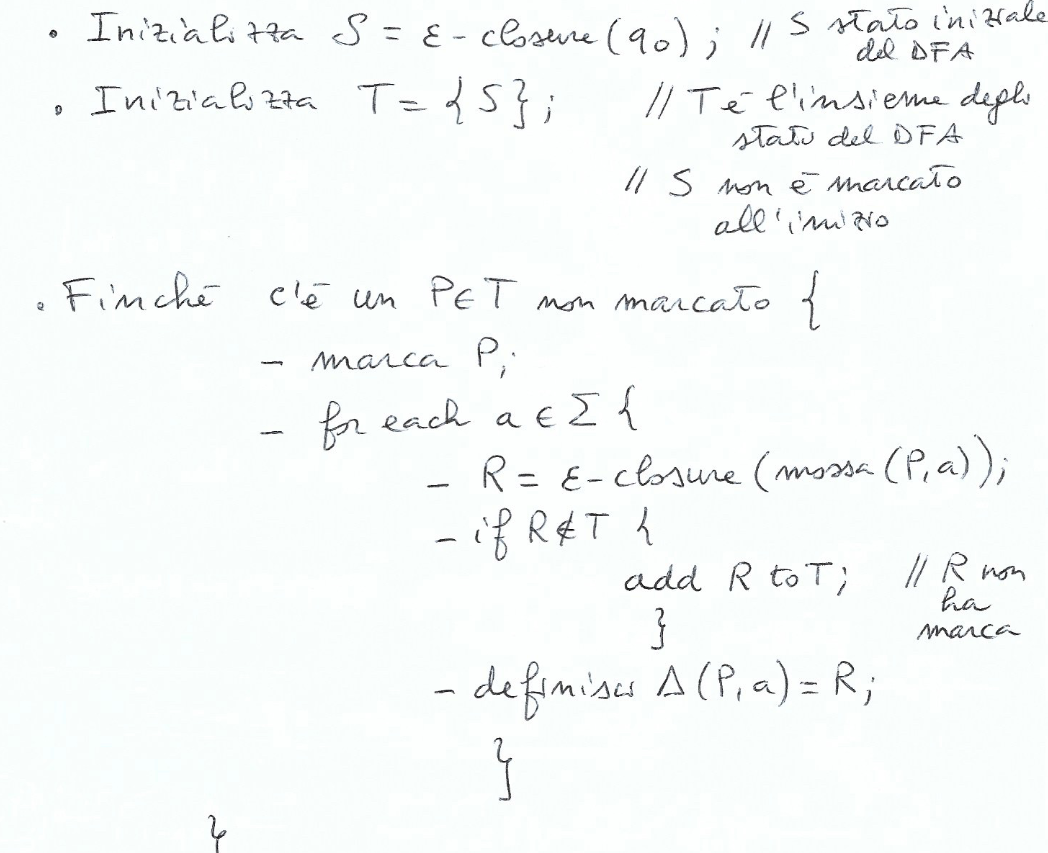 • Inizializza S = ε-closure(q0); // S stato iniziale
del DFA
• Inizializza T = {S}; // T è l'insieme degli
stati del DFA
// S non è marcato
all'inizio
• Finché c'è un P∈T non marcato {
- marca P;
- for each a ∈ Σ {
- R = ε-closure(mossa(P,a));
- if R∉T {
add R to T; // R non
ha
marca
}
- definisci Δ(P,a) = R;
}
}